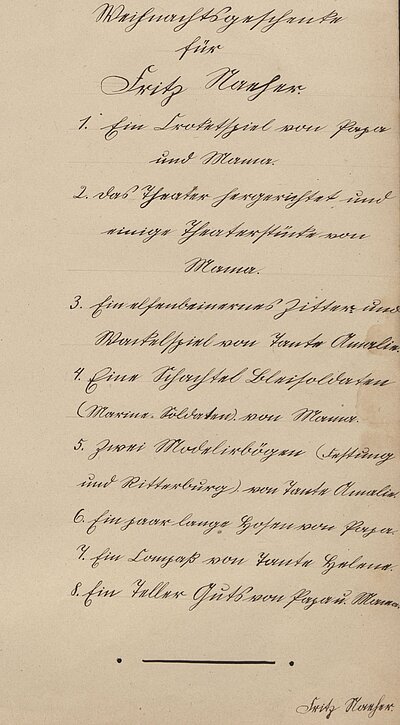 Weihnachtsgeschenke
für
Fritz Naeher.
1. Ein Croketspiel von Papa
und Mama.
2. das Theater hergerichtet und
einige Theaterstücke von
Mama.
3. Ein elfenbeinernes Zitter- und
Wackelspiel von Tante Amalie.
4. Eine Schachtel Bleisoldaten
(Marine-Soldaten) von Mama.
5. Zwei Modelirbögen (Festung
und Ritterburg) von Tante Amalie.
6. Ein paar lange Hosen von Papa.
7. Ein Compaß von Tante Helene.
8. Ein Teller Guts von Papa u. Mama.
Fritz Naeher.